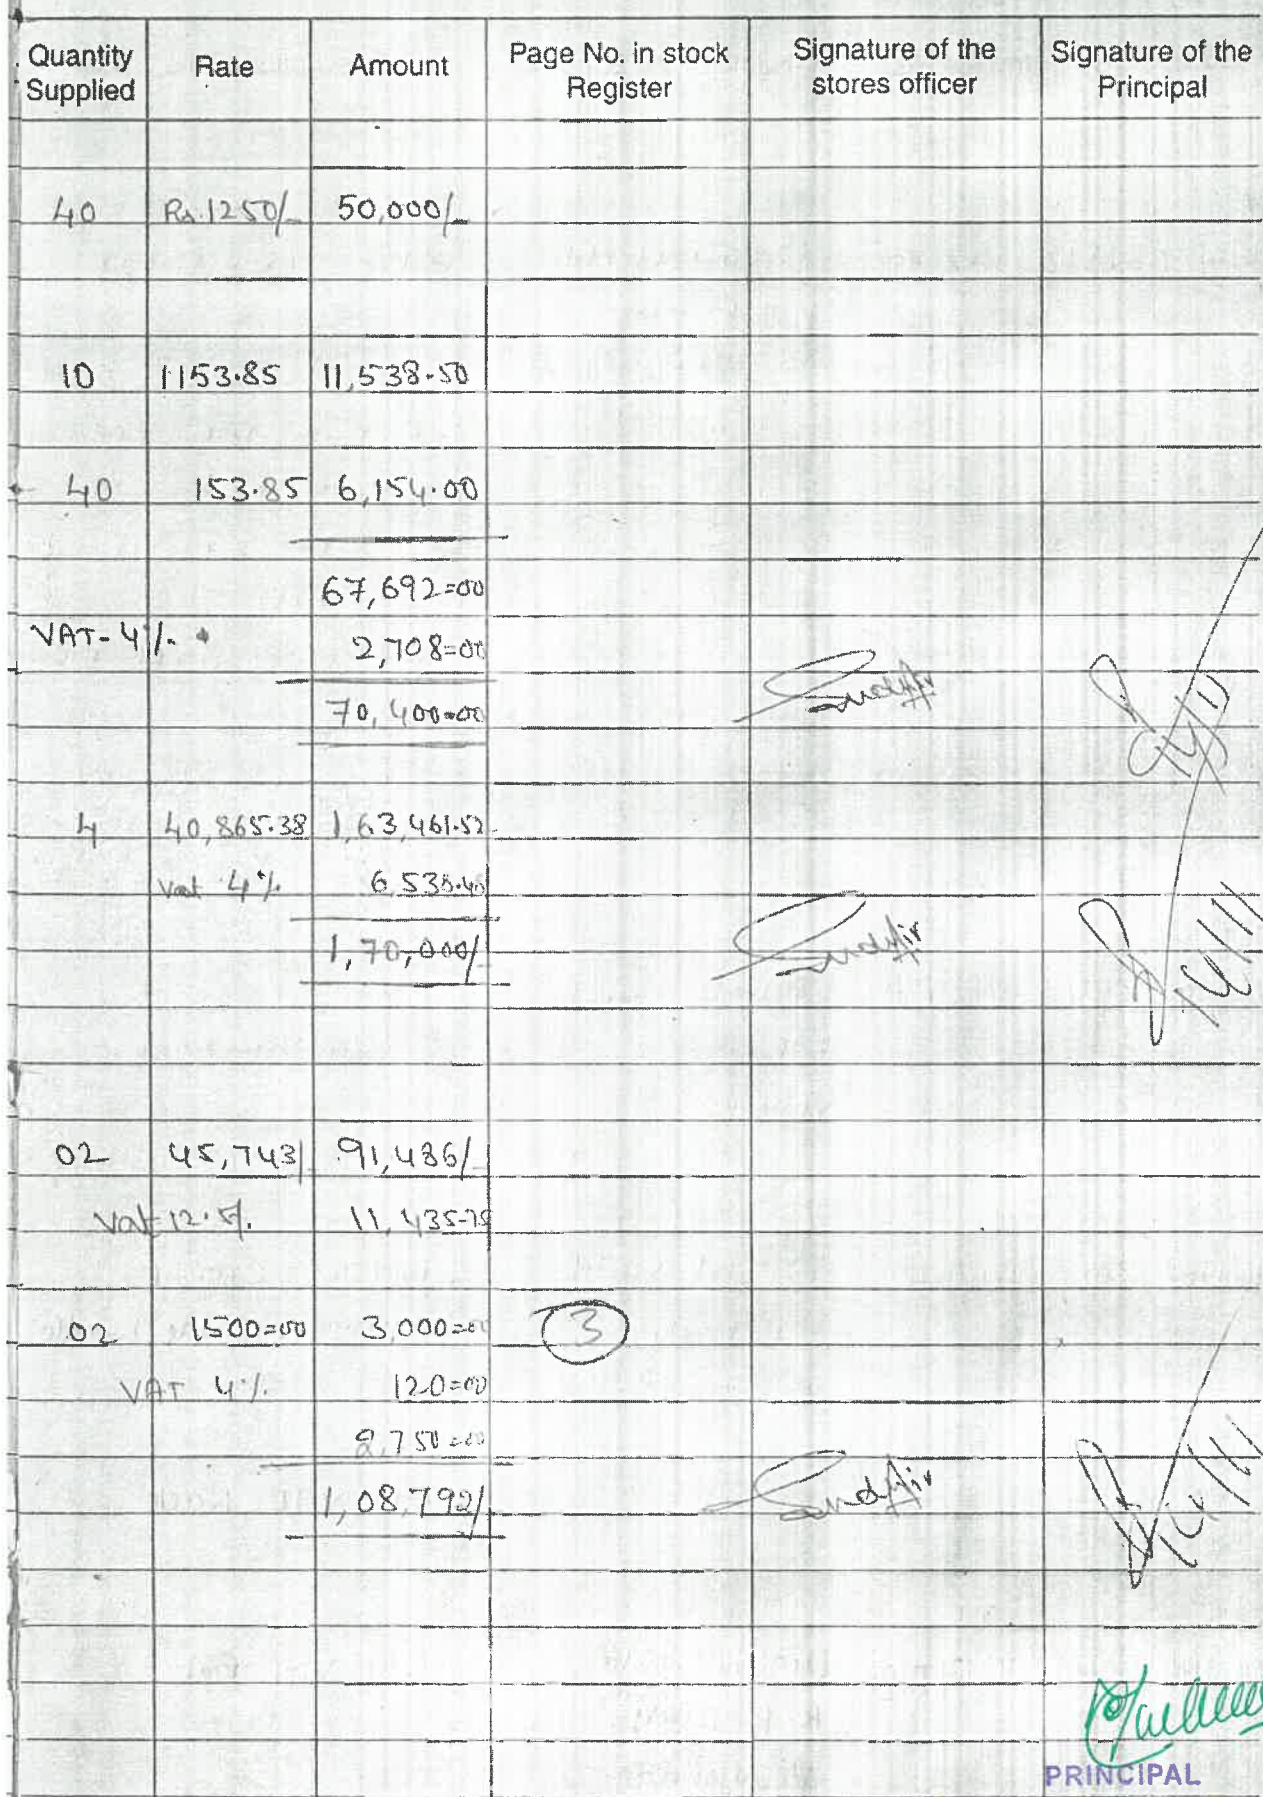 Quantity Supplied Rate Amount Page No. in stock Register Signature of the stores officer Signature of the Principal
40 Rs.1250/- 50,000/-
10 1153.85 11,538.50
40 153.85 6,154.00
67,692=00
VAT-4%. 2,708=00
70,400=00
4 40,865.38 1,63,461.52
Vat 4% 6,538.40
1,70,000/-
02 45,743/ 91,486/-
Vat 12.5%. 11,435-75
02 1500=00 3,000=00 3
VAT 4%. 120=00
2,750=00
1,08,792/
PRINCIPAL